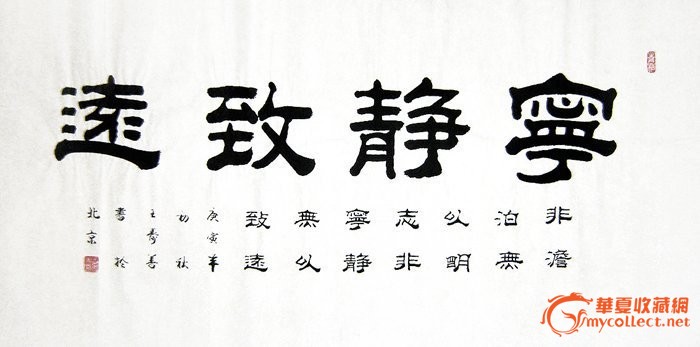 寧静致遠
非澹
泊無
以明
志非
寧静
無以
致遠
庚寅年
初秋
王
書於
北京
華夏收藏網
mycollect.net